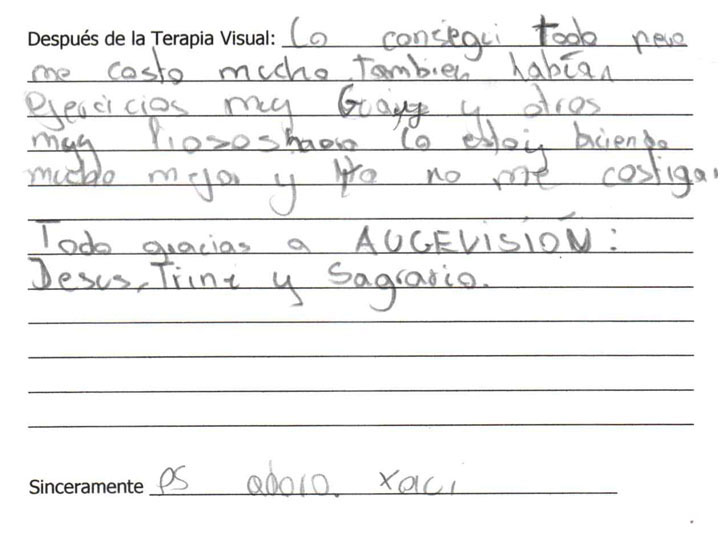 Después de la Terapia Visual: Lo consegui todo pero
me costo mucho. Tambien habían
Ejercicios muy Guays y otros
muy liosos haora lo estoy biciendo
mucho mejor y Ya no me castigan
Todo gracias a AUGEVISIÓN:
Desus, Trini y Sagrario.
Sinceramente os adoro. xaci